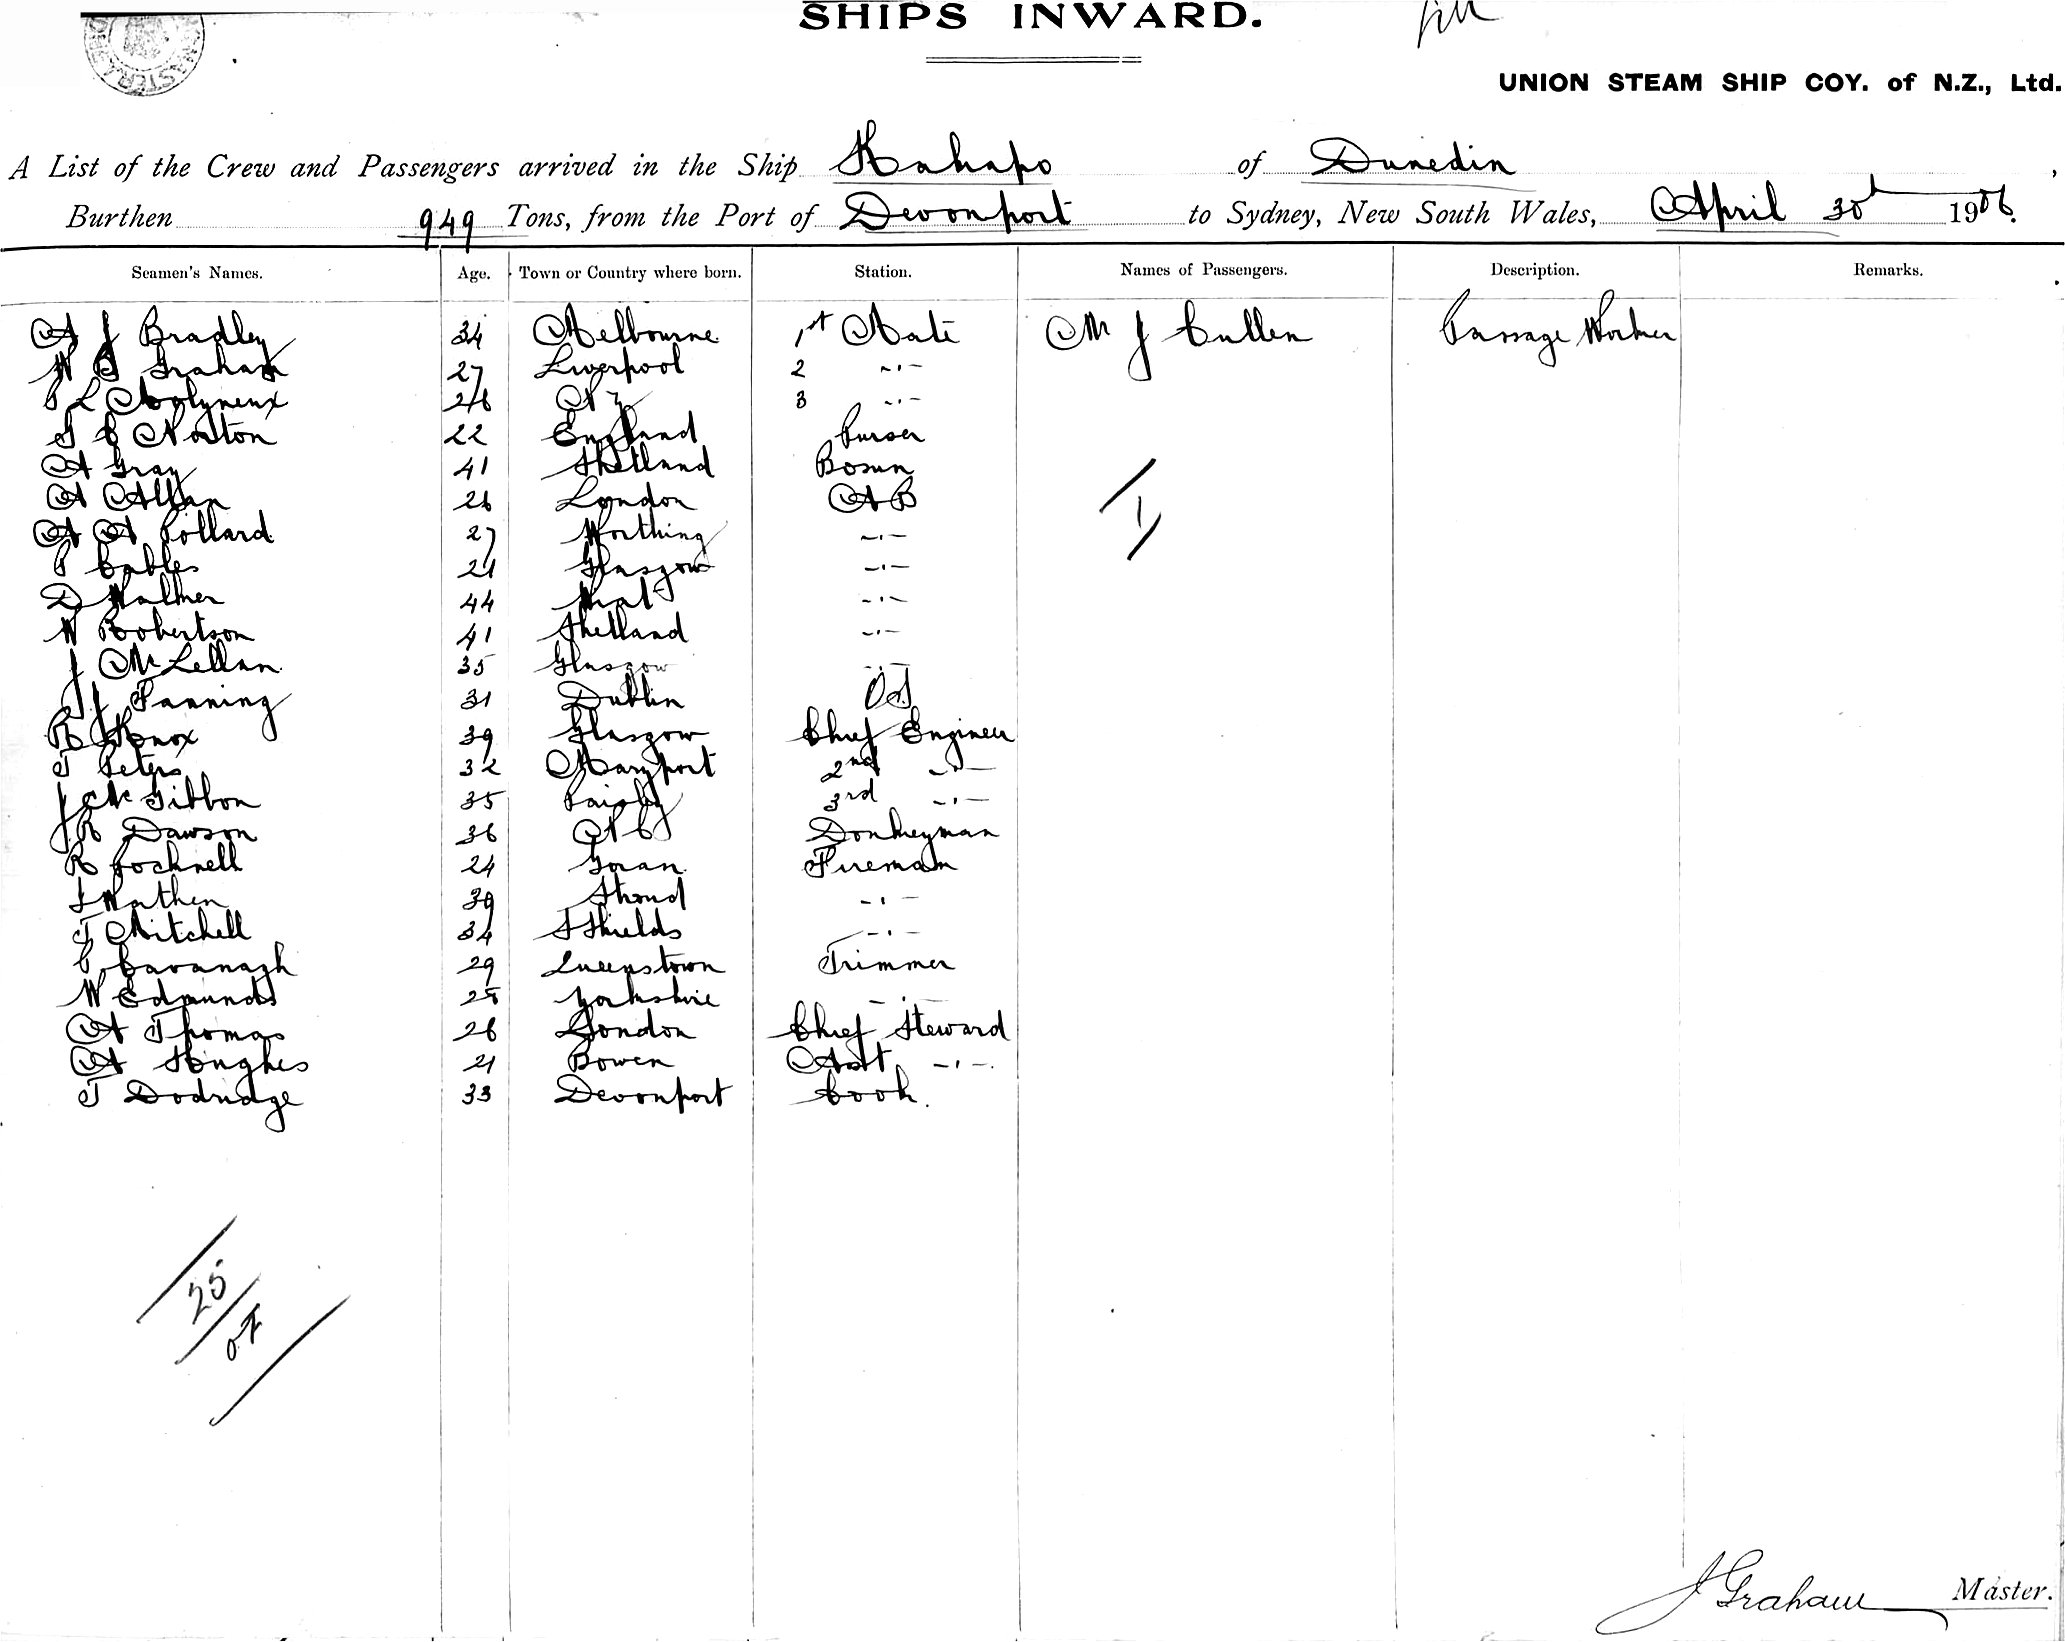 SHIPS INWARD.
UNION STEAM SHIP COY. of N.Z., Ltd.
A List of the Crew and Passengers arrived in the Ship Kakapo of Dunedin,
Burthen 949 Tons, from the Port of Devonport to Sydney, New South Wales, April 30th 1906.
Seamen's Names. Age. Town or Country where born. Station. Names of Passengers. Description. Remarks.
A J Bradley 34 Melbourne 1st Mate Mr J Cullen Passage Worker
W G Graham 27 Liverpool 2 -"-
P L Molyneux 26 NZ 3 -"-
S C Norton 22 England Purser
A Gray 41 Shetland Bosun
A Allan 26 London AB
1
A A Pollard 27 Worthing -"-
P Cables 21 Glasgow -"-
D Walker 44 -"-
W Robertson 41 Shetland -"-
J McLellan 35 Glasgow -"-
J J Fanning 31 Dublin OS
R Knox 39 Glasgow Chief Engineer
T Peters 32 Maryport 2nd -"-
J McGibbon 35 Paisley 3rd -"-
J R Dawson 36 Donkeyman
R Jocknell 24 Govan Fireman
J Wathen 39 Stroud -"-
T Mitchell 34 S Shields -"-
C Cavanagh 29 Queenstown Trimmer
W Edmunds 25 Yorkshire -"-
A Thomas 26 London Chief Steward
A Hughes 21 Bowen Asst -"-
T Dodridge 33 Devonport Cook.
25
J Graham Master.